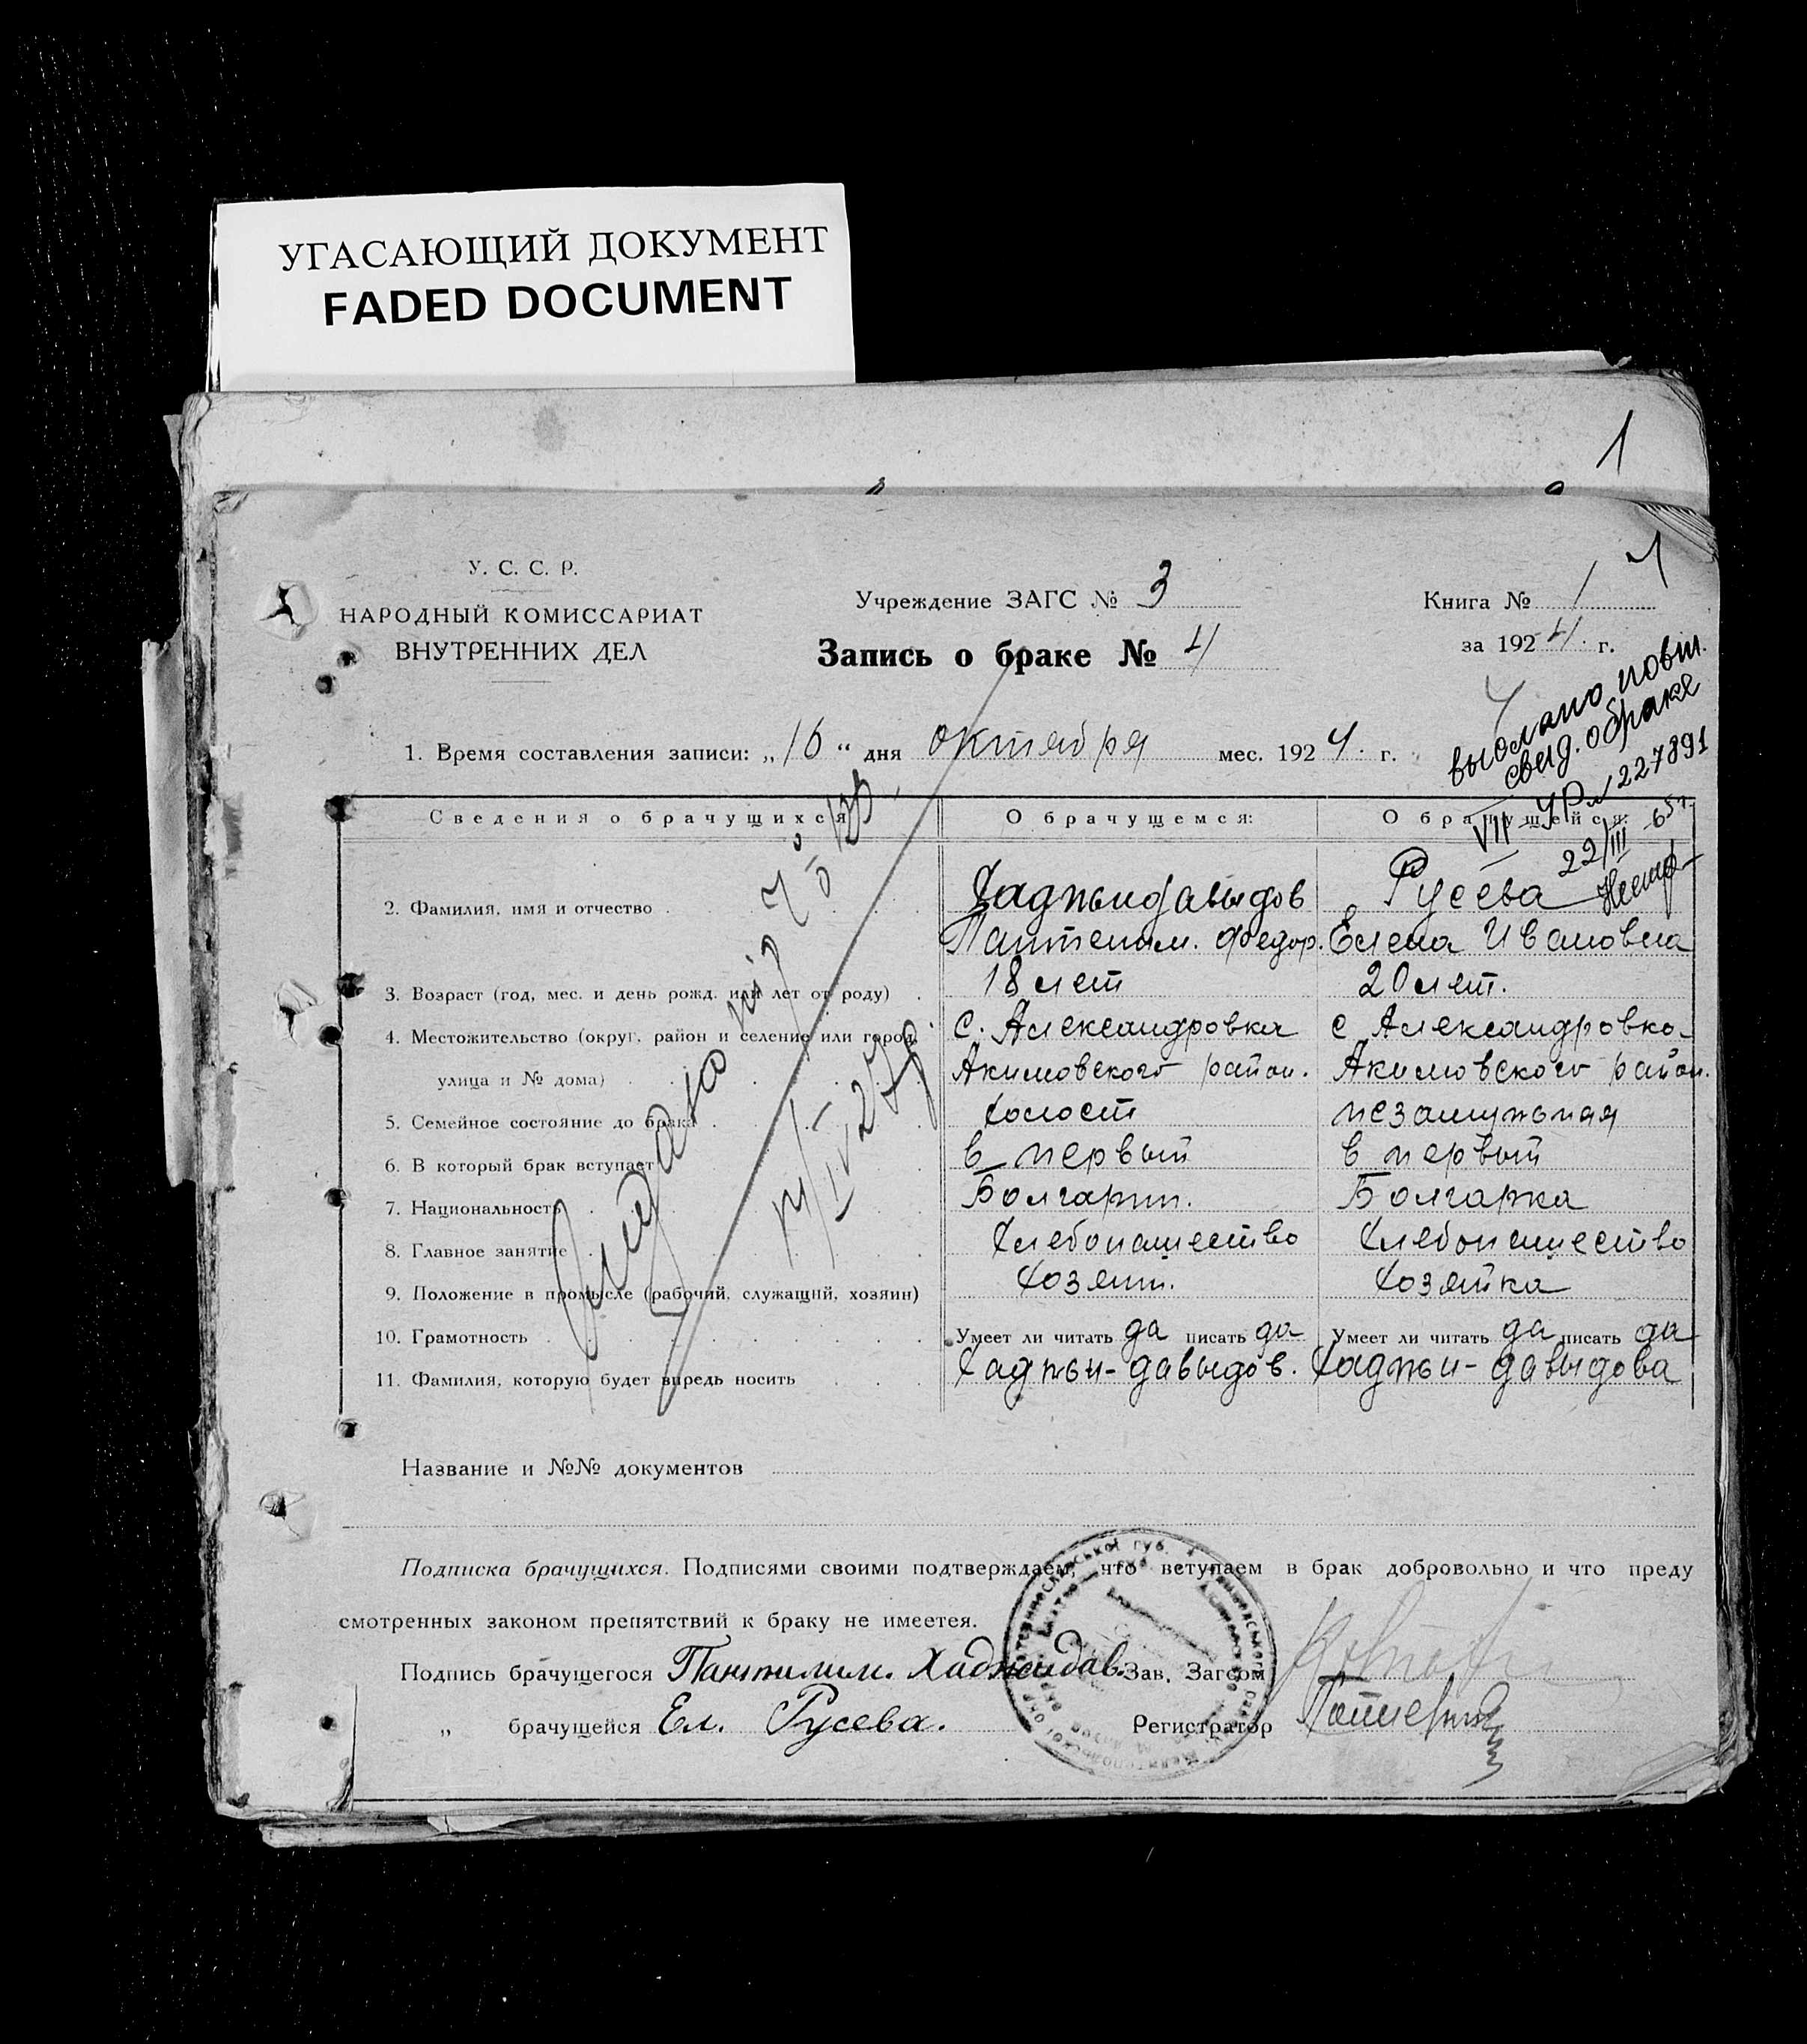 УГАСАЮЩИЙ ДОКУМЕНТ
FADED DOCUMENT
1
У. С. С. Р.
НАРОДНЫЙ КОМИССАРИАТ
ВНУТРЕННИХ ДЕЛ
Учреждение ЗАГС № 3
Запись о браке № 4
Книга № 1
за 1924 г.
1. Время составления записи: „16“ дня октября мес. 1924 г.
выслано повт.
свид. о браке
VII-УР № 227891
22/III-65 г.
Сведения о брачущихся
О брачущемся:
О брачущейся:
2. Фамилия, имя и отчество
Хаджыдавыдов
Пантелим. Федор.
Русева
Елена Ивановна
3. Возраст (год, мес. и день рожд. или лет от роду)
18 лет
20 лет.
4. Местожительство (округ, район и селение или город,
улица и № дома)
с. Александровка
Акимовского район.
с Александровка
Акимовского район.
5. Семейное состояние до брака
холост
незамужняя
6. В который брак вступает
в первый
в первый
7. Национальность
Болгарин.
Болгарка
8. Главное занятие
Хлебопашество
Хлебопашество
9. Положение в промысле (рабочий, служащий, хозяин)
Хозяин.
Хозяйка
10. Грамотность
Умеет ли читать да писать да
Умеет ли читать да писать да
11. Фамилия, которую будет впредь носить
Хаджы-давыдов.
Хаджы-давыдова
Название и №№ документов
Подписка брачущихся. Подписями своими подтверждаем, что вступаем в брак добровольно и что преду
смотренных законом препятствий к браку не имеется.
Подпись брачущегося Пантилим. Хаджидав. Зав. Загсом
„ брачущейся Ел. Русева. Регистратор